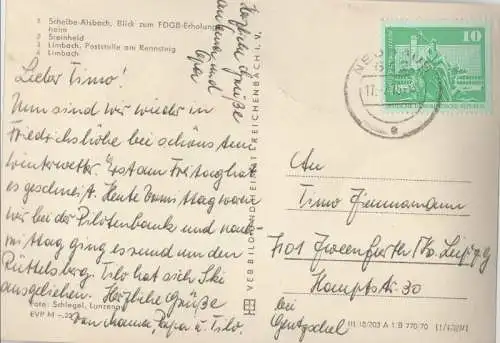 1 Scheibe-Alsbach, Blick zum FDGB-Erholungs-
heim
2 Steinheid
3 Limbach, Poststelle am Rennsteig
4 Limbach
Lieber Timo!
Nun sind wir wieder in
Friedrichshöhe bei schönstem
Winterwetter. Erst am Freitag hat
es geschneit. Heute Vormittag waren
wir bei der Pilotenbank und nach-
mittag ging es rund um den
Rüttelsberg. Tilo hat sich Ski
ausgeliehen. Herzliche Grüße
von Mama, Papa u. Tilo.
Foto: Schlegel, Lunzenau
EVP M -,25
Herzliche Grüße
und
Opa
VEB BILD UND HEIMAT REICHENBACH I. V.
NEUHAUS
17.
10
DEUTSCHE DEMOKRATISCHE REPUBLIK
An
Timo Zimmermann
7101 Zweenfurth/Kr. Leipzig
Hauptstr. 30
bei
Gentzschel
III/18/203 A 1 B 770/70